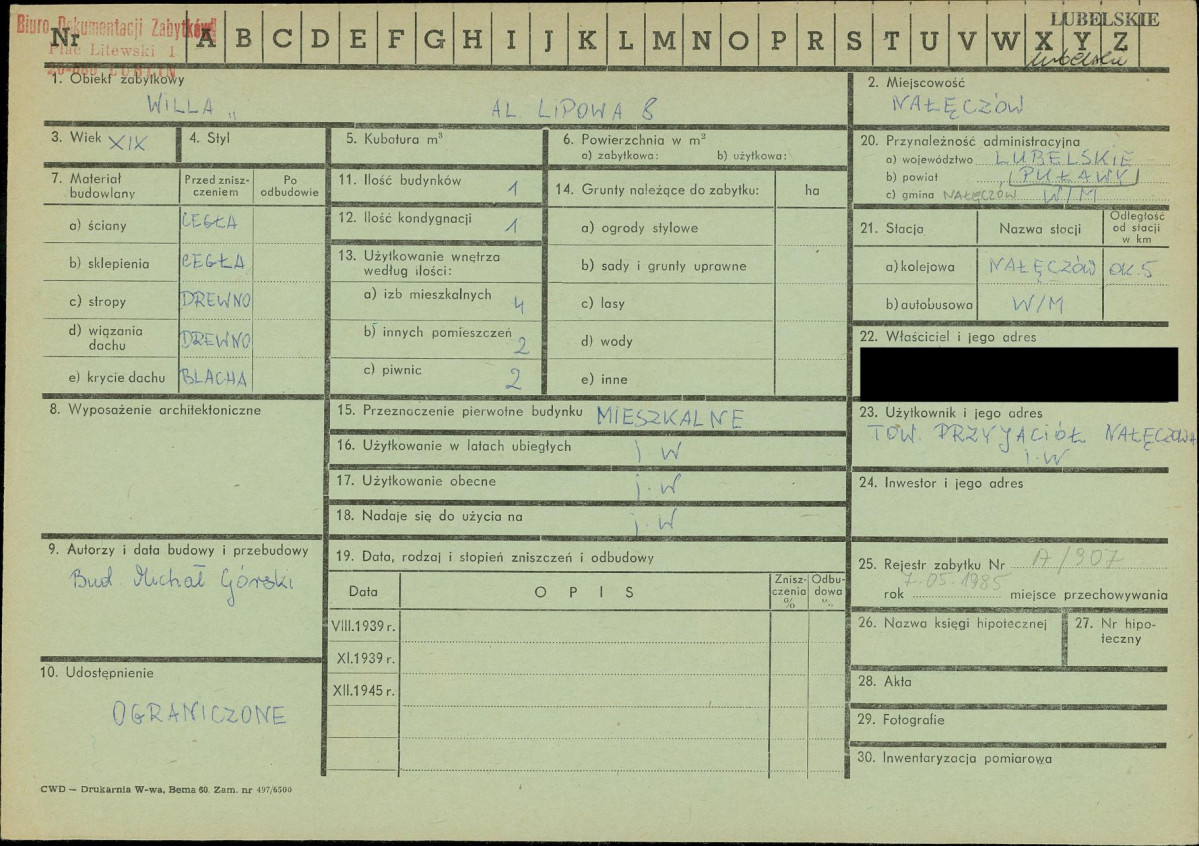 Biuro Dokumentacji Zabytków
Plac Litewski 1
20-080 LUBLIN
LUBELSKIE
Nr A B C D E F G H I J K L M N O P R S T U V W X Y Z
lubelskie
1. Obiekt zabytkowy
WILLA „ AL. LIPOWA 8
2. Miejscowość
NAŁĘCZÓW
3. Wiek XIX
4. Styl
5. Kubatura m³
6. Powierzchnia w m²
a) zabytkowa: b) użytkowa:
7. Materiał budowlany
Przed znisz-
czeniem
Po
odbudowie
a) ściany CEGŁA
b) sklepienia CEGŁA
c) stropy DREWNO
d) wiązania
dachu DREWNO
e) krycie dachu BLACHA
8. Wyposażenie architektoniczne
9. Autorzy i data budowy i przebudowy
Bud. Michał Górski
10. Udostępnienie
OGRANICZONE
11. Ilość budynków 1
12. Ilość kondygnacji 1
13. Użytkowanie wnętrza
według ilości:
a) izb mieszkalnych 4
b) innych pomieszczeń 2
c) piwnic 2
14. Grunty należące do zabytku: ha
a) ogrody stylowe
b) sady i grunty uprawne
c) lasy
d) wody
e) inne
15. Przeznaczenie pierwotne budynku MIESZKALNE
16. Użytkowanie w latach ubiegłych j W
17. Użytkowanie obecne j. W
18. Nadaje się do użycia na j. W
19. Data, rodzaj i stopień zniszczeń i odbudowy
Data OPIS Znisz-
czenia
% Odbu-
dowa
%
VIII.1939 r.
XI.1939 r.
XII.1945 r.
20. Przynależność administracyjna
a) województwo LUBELSKIE
b) powiat (PUŁAWY)
c) gmina NAŁĘCZÓW W/M
21. Stacja Nazwa stacji Odległość
od stacji
w km
a) kolejowa NAŁĘCZÓW OK. 5
b) autobusowa W/M
22. Właściciel i jego adres
23. Użytkownik i jego adres
TOW. PRZYJACIÓŁ NAŁĘCZOWA
j.W
24. Inwestor i jego adres
25. Rejestr zabytku Nr A/907
rok 7.05.1985 miejsce przechowywania
26. Nazwa księgi hipotecznej
27. Nr hipo-
teczny
28. Akta
29. Fotografie
30. Inwentaryzacja pomiarowa
CWD — Drukarnia W-wa, Bema 60. Zam. nr 497/6500